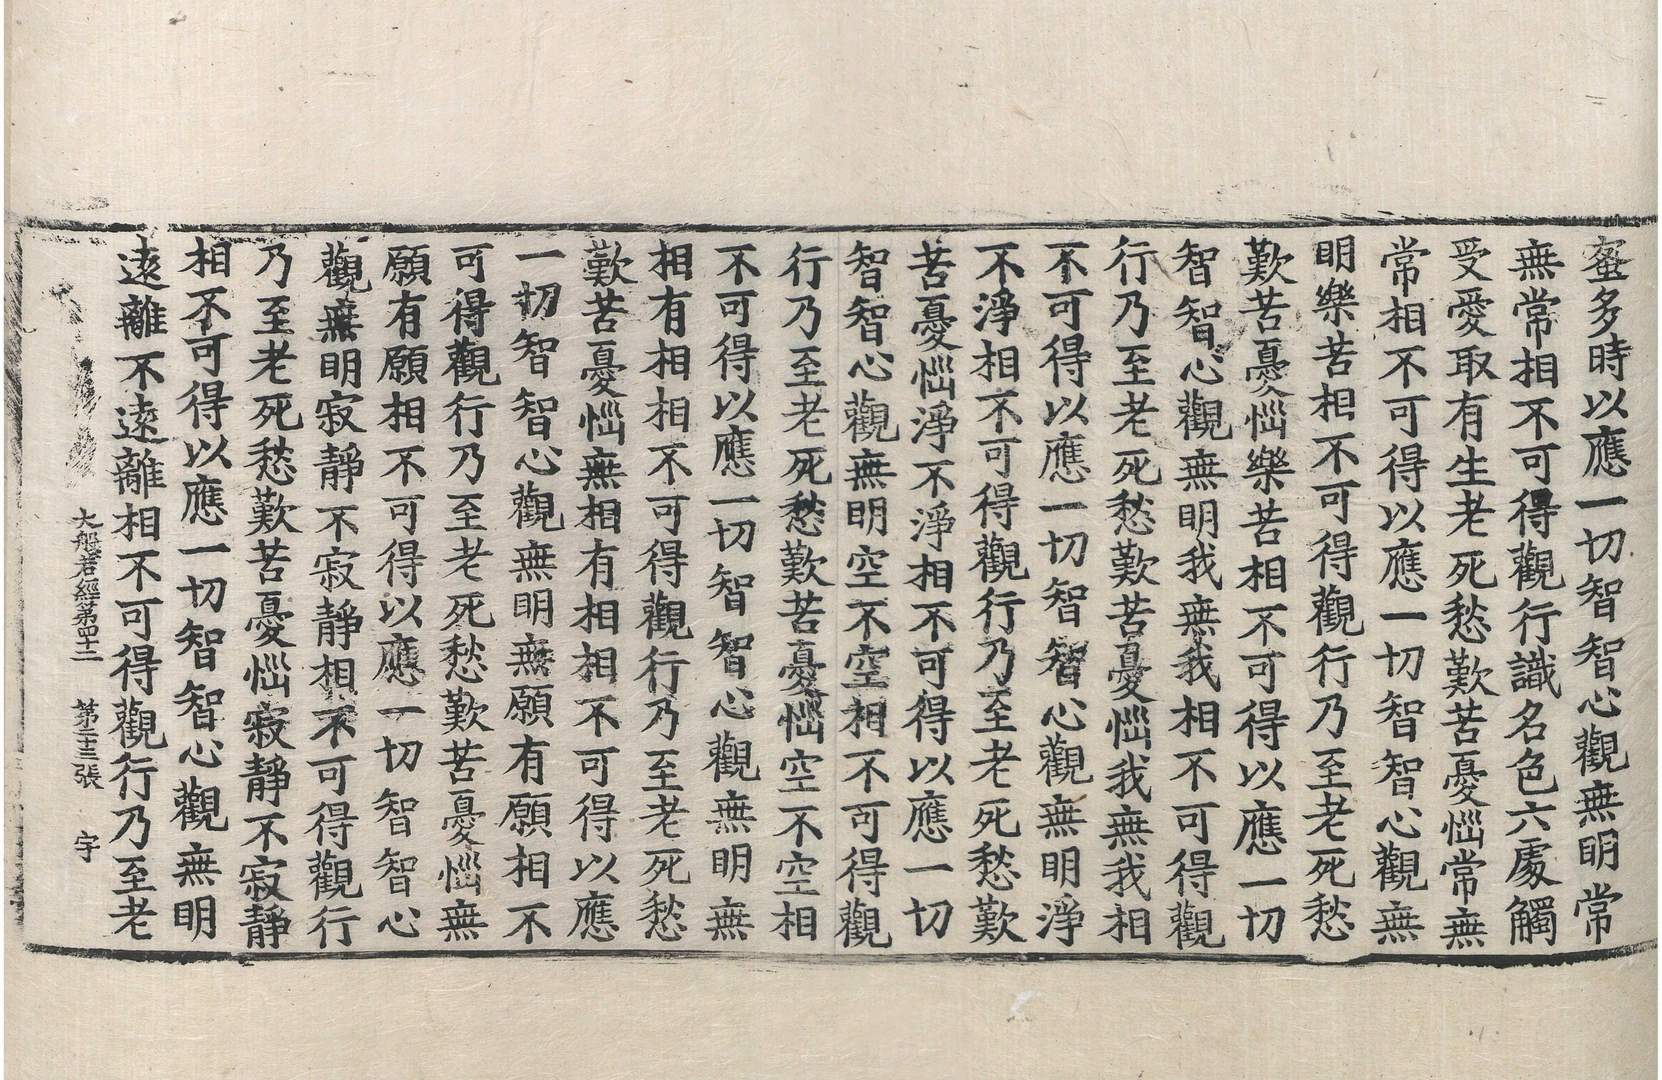 蜜多時以應一切智智心觀無明常
無常相不可得觀行識名色六處觸
受愛取有生老死愁歎苦憂惱常無
常相不可得以應一切智智心觀無
明樂苦相不可得觀行乃至老死愁
歎苦憂惱樂苦相不可得以應一切
智智心觀無明我無我相不可得觀
行乃至老死愁歎苦憂惱我無我相
不可得以應一切智智心觀無明淨
不淨相不可得觀行乃至老死愁歎
苦憂惱淨不淨相不可得以應一切
智智心觀無明空不空相不可得觀
行乃至老死愁歎苦憂惱空不空相
不可得以應一切智智心觀無明無
相有相相不可得觀行乃至老死愁
歎苦憂惱無相有相相不可得以應
一切智智心觀無明無願有願相不
可得觀行乃至老死愁歎苦憂惱無
願有願相不可得以應一切智智心
觀無明寂靜不寂靜相不可得觀行
乃至老死愁歎苦憂惱寂靜不寂靜
相不可得以應一切智智心觀無明
遠離不遠離相不可得觀行乃至老
大般若經第四十二 第二十三張 字